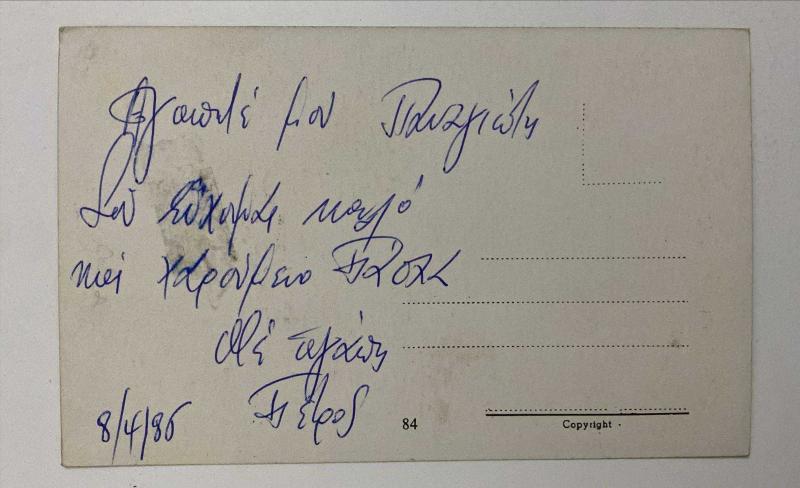 Αγαπητέ μου Παναγιώτη
Σου εύχομαι καλό
και χαρούμενο Πάσχα
Με αγάπη
Πέρος
8/4/86
84
Copyright